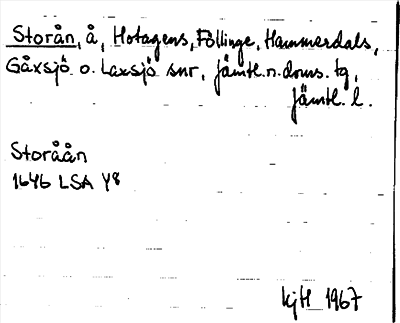 Storån, å, Hotagens, Föllinge, Hammerdals,
Gåxsjö o. Laxsjö snr, Jämtl. n. doms. tg,
Jämtl. l.
Storåån
1646 LSA Y8
KjH 1967